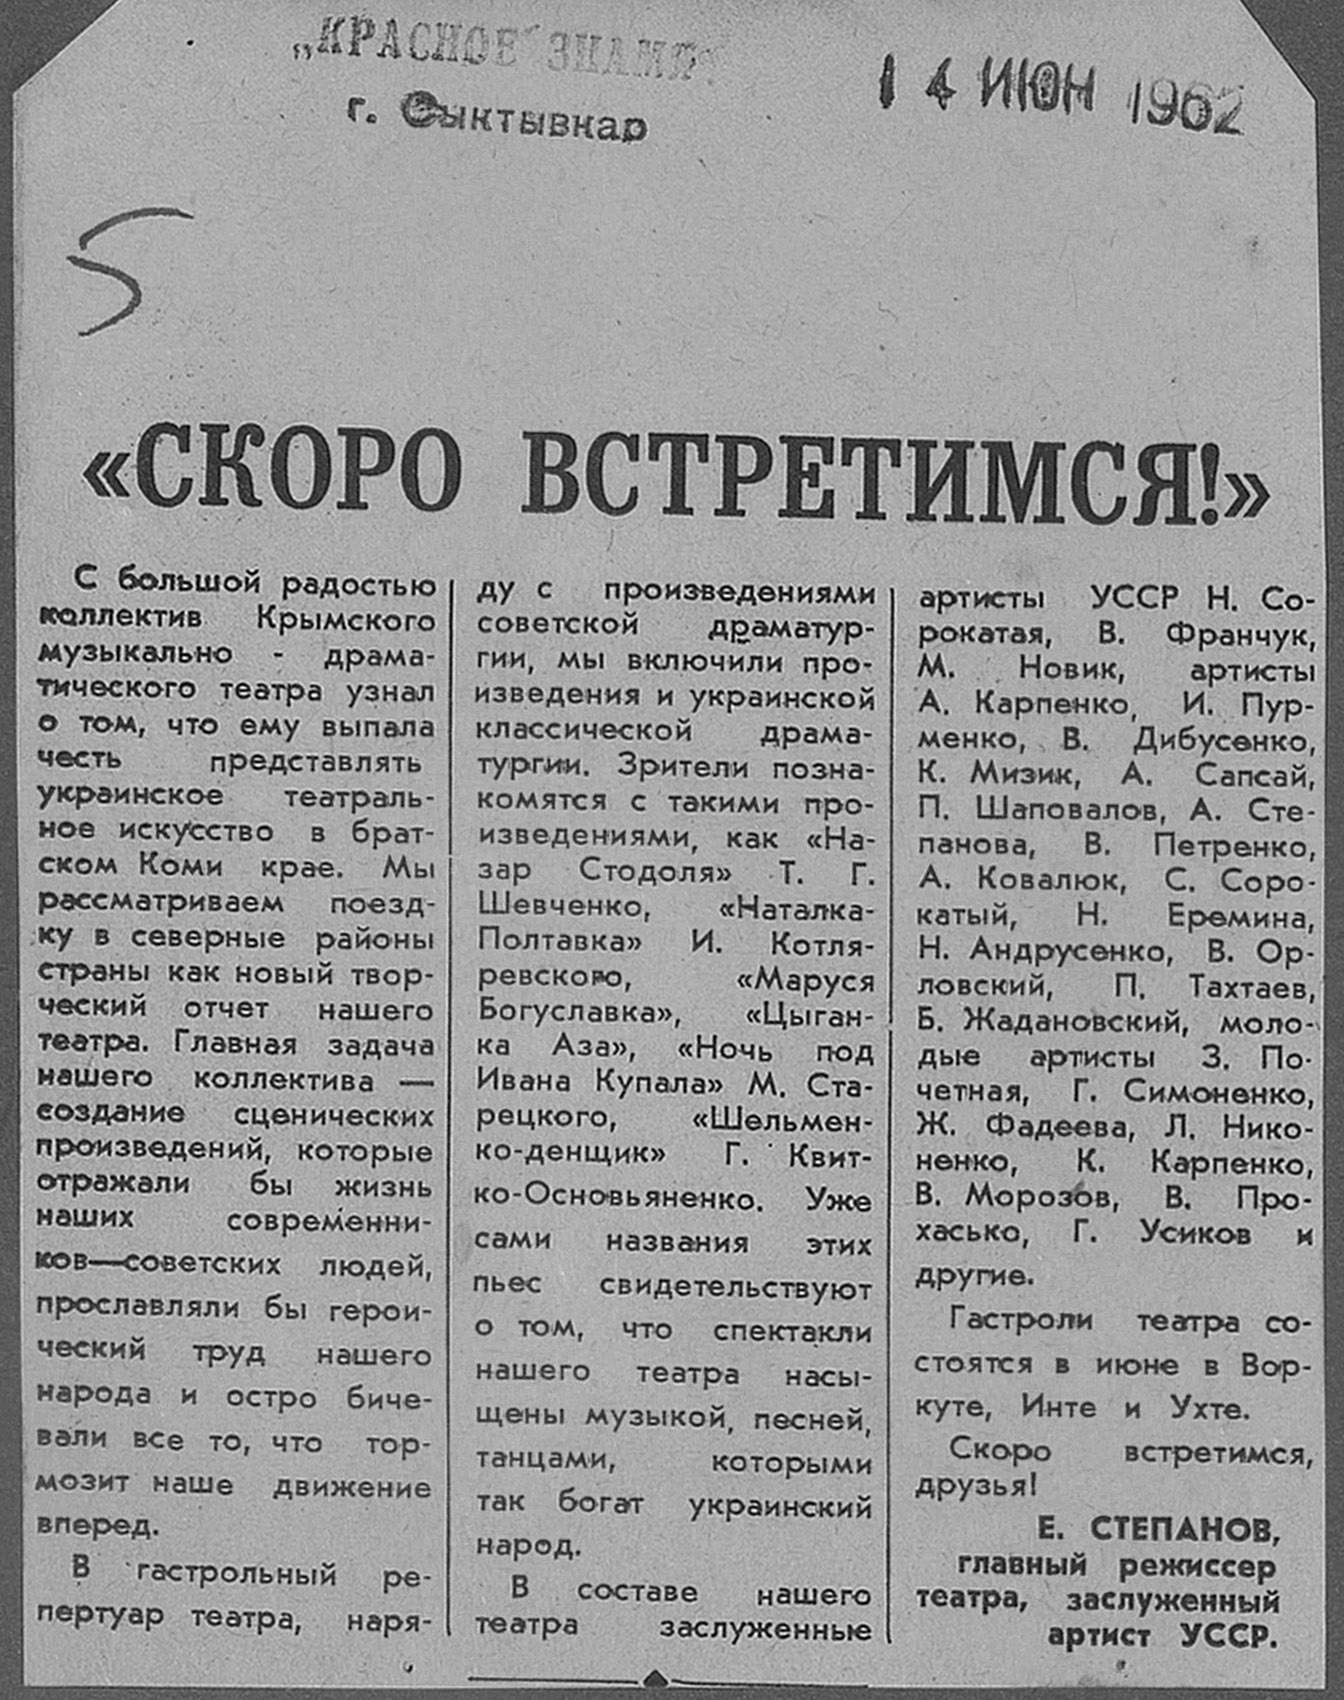 „КРАСНОЕ ЗНАМЯ"
г. Сыктывкар
14 ИЮН 1962
5
«СКОРО ВСТРЕТИМСЯ!»
С большой радостью
коллектив Крымского
музыкально - драма-
тического театра узнал
о том, что ему выпала
честь представлять
украинское театраль-
ное искусство в брат-
ском Коми крае. Мы
рассматриваем поезд-
ку в северные районы
страны как новый твор-
ческий отчет нашего
театра. Главная задача
нашего коллектива —
создание сценических
произведений, которые
отражали бы жизнь
наших современни-
ков—советских людей,
прославляли бы герои-
ческий труд нашего
народа и остро биче-
вали все то, что тор-
мозит наше движение
вперед.
В гастрольный ре-
пертуар театра, наря-
ду с произведениями
советской драматур-
гии, мы включили про-
изведения и украинской
классической драма-
тургии. Зрители позна-
комятся с такими про-
изведениями, как «На-
зар Стодоля» Т. Г.
Шевченко, «Наталка-
Полтавка» И. Котля-
ревского, «Маруся
Богуславка», «Цыган-
ка Аза», «Ночь под
Ивана Купала» М. Ста-
рецкого, «Шельмен-
ко-денщик» Г. Квит-
ко-Основьяненко. Уже
сами названия этих
пьес свидетельствуют
о том, что спектакли
нашего театра насы-
щены музыкой, песней,
танцами, которыми
так богат украинский
народ.
В составе нашего
театра заслуженные
артисты УССР Н. Со-
рокатая, В. Франчук,
М. Новик, артисты
А. Карпенко, И. Пур-
менко, В. Дибусенко,
К. Мизик, А. Сапсай,
П. Шаповалов, А. Сте-
панова, В. Петренко,
А. Ковалюк, С. Соро-
катый, Н. Еремина,
Н. Андрусенко, В. Ор-
ловский, П. Тахтаев,
Б. Жадановский, моло-
дые артисты З. По-
четная, Г. Симоненко,
Ж. Фадеева, Л. Нико-
ненко, К. Карпенко,
В. Морозов, В. Про-
хасько, Г. Усиков и
другие.
Гастроли театра со-
стоятся в июне в Вор-
куте, Инте и Ухте.
Скоро встретимся,
друзья!
Е. СТЕПАНОВ,
главный режиссер
театра, заслуженный
артист УССР.